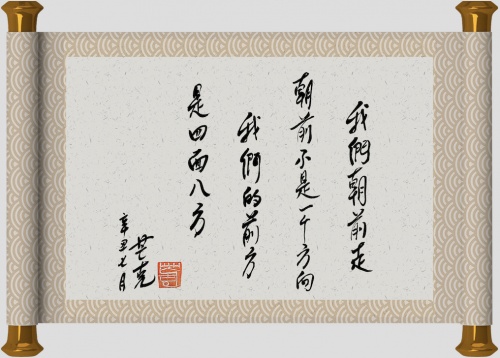 我們朝前走
朝前不是一个方向
我們的前方
是四面八方
芒克
辛丑七月